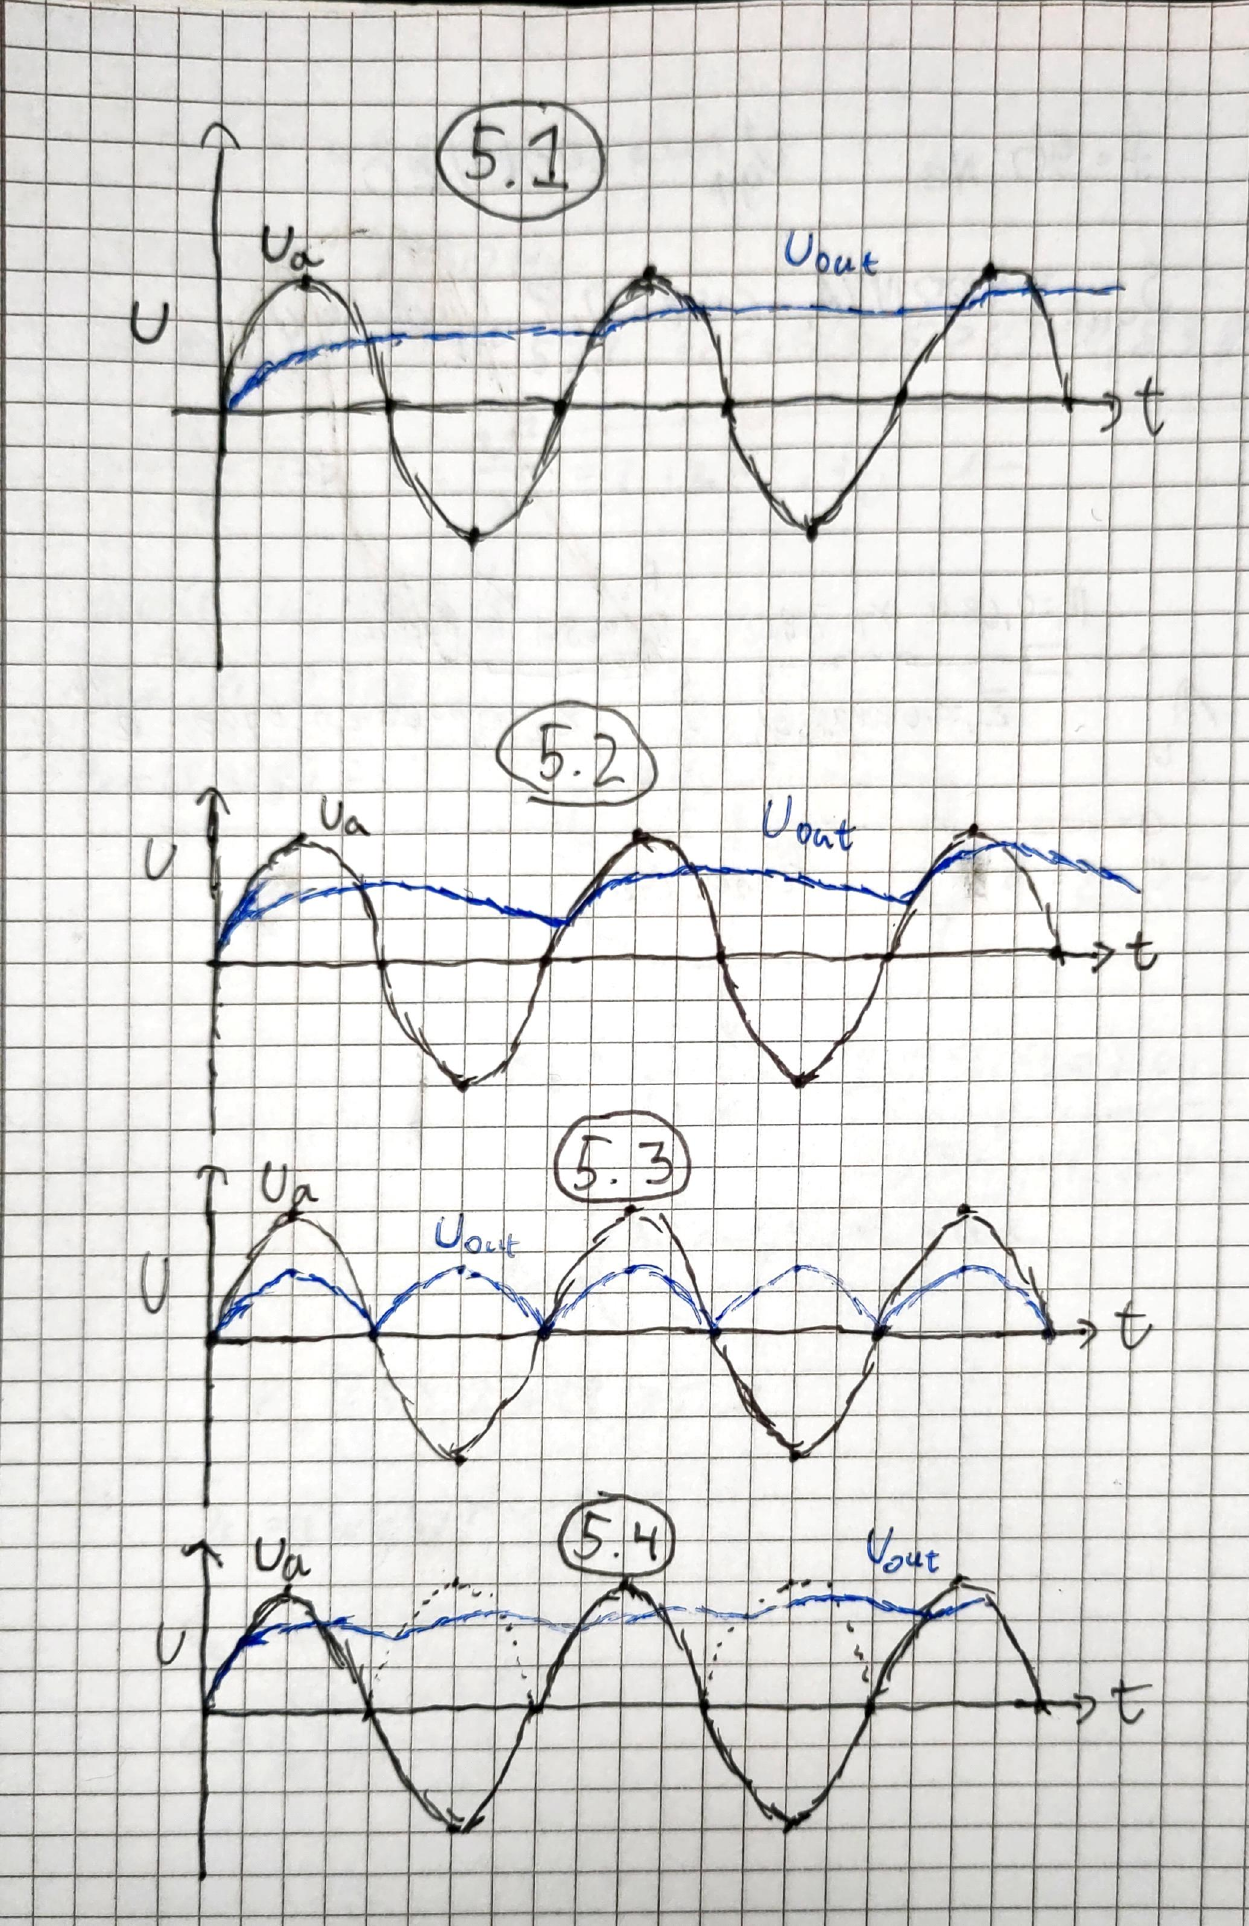 5.1
Ua
Uout
U
t
5.2
Ua
Uout
U
t
5.3
Ua
Uout
U
t
5.4
Ua
Uout
U
t